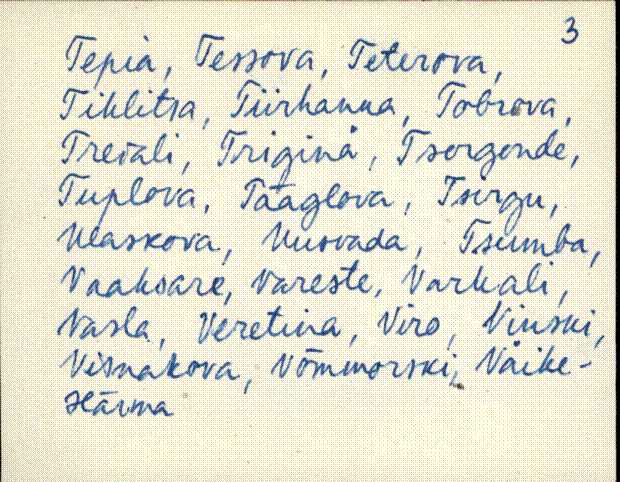 3
Tepia, Tessova, Teterova,
Tihlitsa, Tiirhanna, Tobrova,
Treiali, Triginä, Tsergonde,
Tuplova, Tääglova, Tsirgu,
Ulaskova, Uusvada, Tsumba,
Vaaksare, Vareste, Varhali,
Vasla, Veretina, Viro, Vinski,
Visnakova, Võmmorski, Väike-
Härma